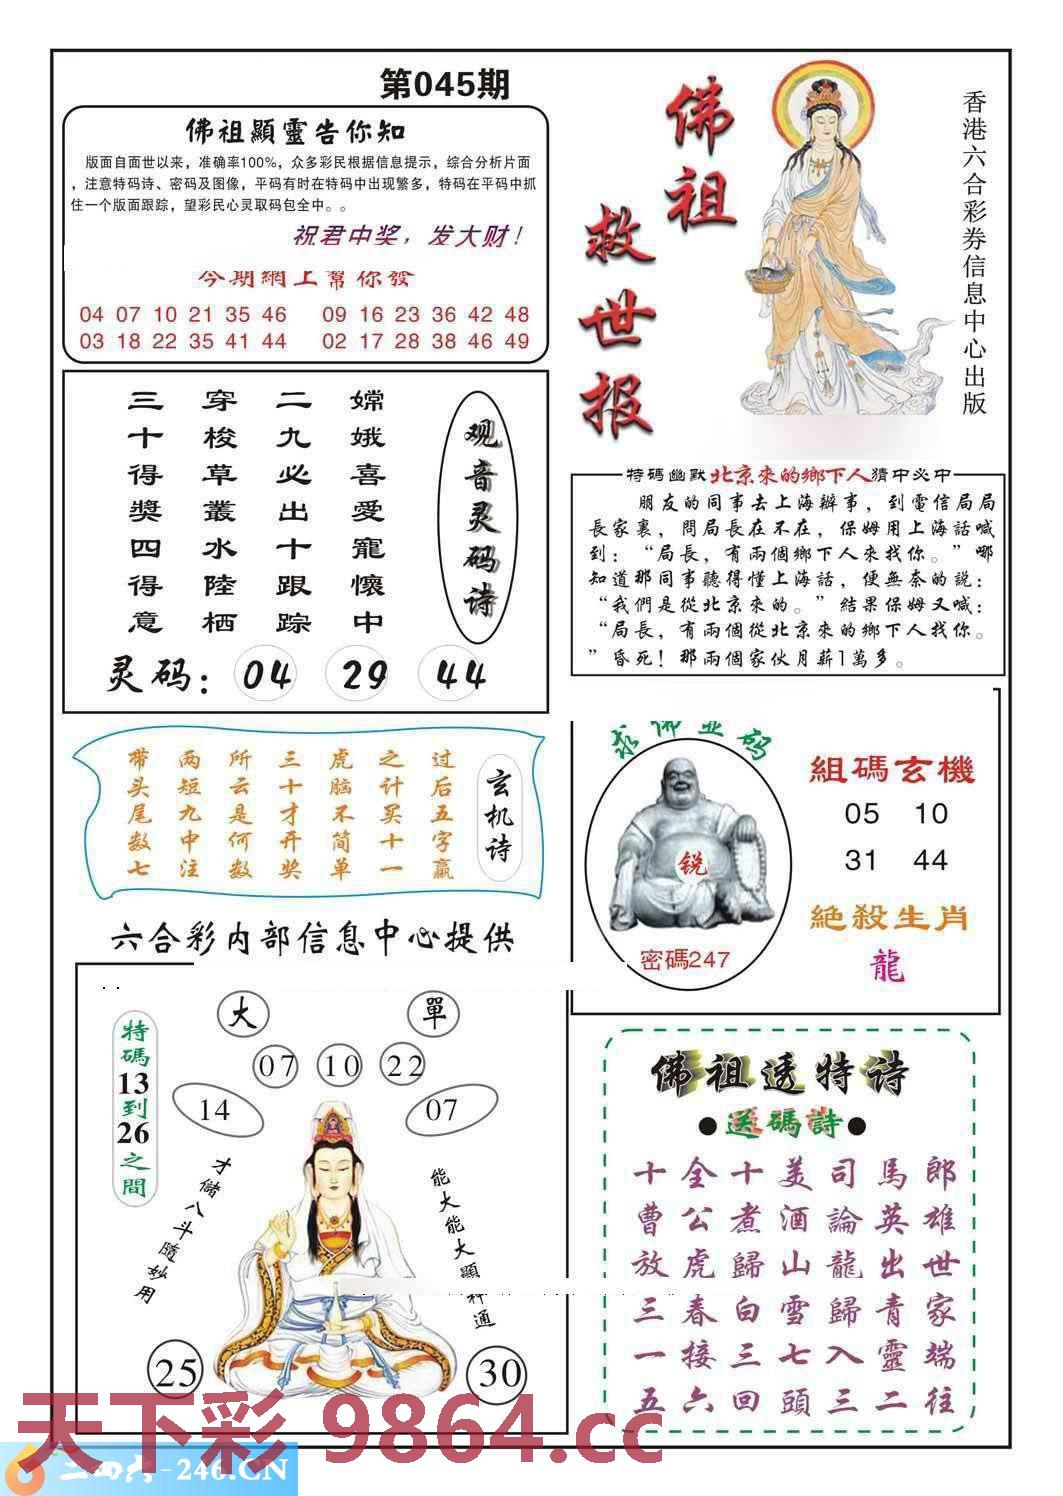 第045期
佛祖顯靈告你知
版面自面世以来，准确率100%，众多彩民根据信息提示，综合分析片面
，注意特码诗、密码及图像，平码有时在特码中出现繁多，特码在平码中抓
住一个版面跟踪，望彩民心灵取码包全中。。
祝君中奖，发大财！
今期網上幫你發
04 07 10 21 35 46 09 16 23 36 42 48
03 18 22 35 41 44 02 17 28 38 46 49
佛祖
救世报
香港六合彩券信息中心出版
观音灵码诗
嫦娥喜愛寵懷中
二九必出十跟踪
穿梭草叢水陸栖
三十得獎四得意
灵码：04 29 44
特碼幽默北京來的鄉下人猜中必中
朋友的同事去上海辦事，到電信局局
長家裏，問局長在不在，保姆用上海話喊
到：“局長，有兩個鄉下人來找你。”哪
知道那同事聽得懂上海話，便無奈的説：
“我們是從北京來的。”結果保姆又喊：
“局長，有兩個從北京來的鄉下人找你。
”昏死！那兩個家伙月薪1萬多。
玄机诗
过后五字赢
之计买十一
虎脑不简单
三十才开奖
所云是何数
两短九中注
带头尾数七
求佛並码
锐
密碼247
組碼玄機
05 10
31 44
絕殺生肖
龍
六合彩内部信息中心提供
大 單
07 10 22
14 07
特碼13到26之間
才儲八斗隨妙用
能大能大顯神通
25 30
佛祖透特诗
●送碼詩●
十全十美司馬郎
曹公煮酒論英雄
放虎歸山龍出世
三春白雪歸青家
一接三七入靈端
五六回頭三二往
天下彩 9864.cc
二四六-246.CN